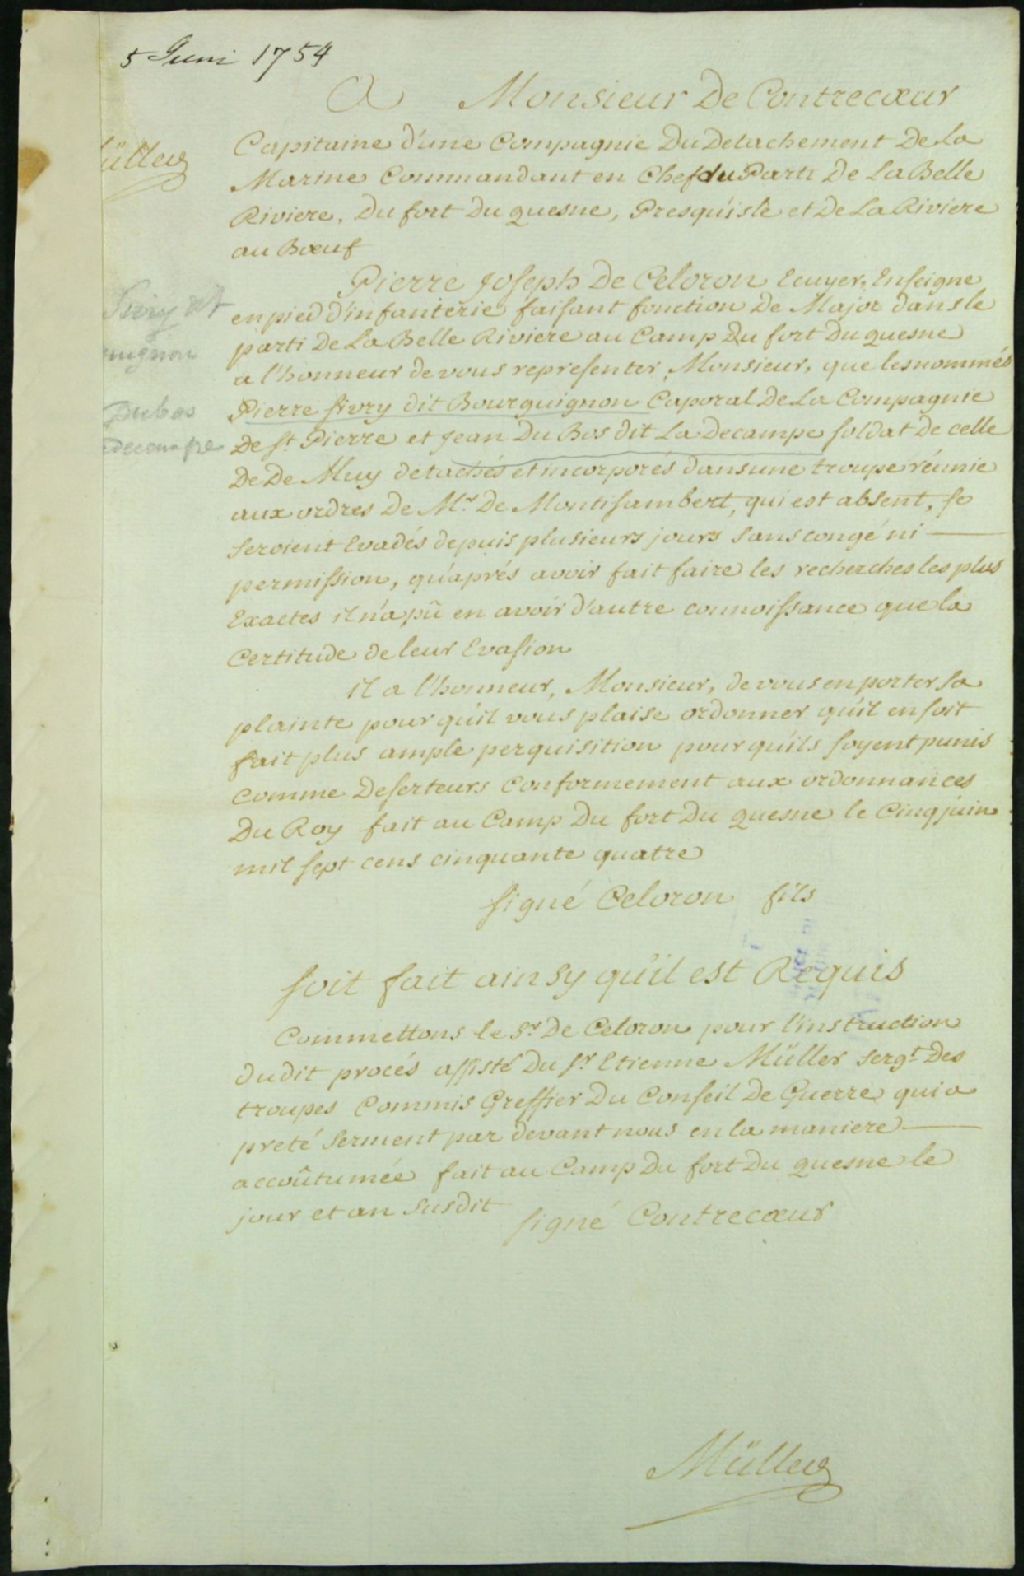 5 Juni 1754
A Monsieur De Contrecœur
Capitaine d'une Compagnie Du Detachement De La
Marine Commandant en Chef du Parti De La Belle
Riviere, Du fort Du quesne, Presqu'isle et De La Riviere
au Bœuf
Müller
Pierre Joseph De Celoron Ecuyer, Enseigne
en pied d'infanterie faisant fonction De Major dans le
parti De La Belle Riviere au Camp Du fort Du quesne
a l'honneur de vous representer, Monsieur, que les nommés
Pierre sivry dit Bourguignon Caporal De La Compagnie
De St. Pierre et Jean Du Bos dit La Decampe soldat de celle
De De Muy detachés et incorporés dans une troupe réunie
aux ordres De Mr. De Montisambert, qui est absent, se
seroient Evadés depuis plusieurs jours sans congé ni
permission, qu'aprés avoir fait faire les recherches les plus
Exactes il n'a pû en avoir d'autre connoissance que la
Certitude de leur Evasion
Sivry dit
Dubos
il a l'honneur, Monsieur, de vous en porter sa
plainte pour qu'il vous plaise ordonner qu'il en soit
fait plus ample perquisition pour qu'ils soyent punis
comme Deserteurs Conformement aux ordonnances
Du Roy fait au Camp Du fort Du quesne le Cinq juin
mil sept cens cinquante quatre
signé Celoron fils
soit fait ainsy qu'il est Requis
Commettons le Sr De Celoron pour l'instruction
dudit procés assisté Du Sr Etienne Müller sergt. Des
troupes Commis Greffier Du Conseil De Guerre qui a
preté serment par devant nous en la maniere
accoûtumée fait au Camp Du fort Du quesne le
jour et an susdit
signé Contrecœur
Müller